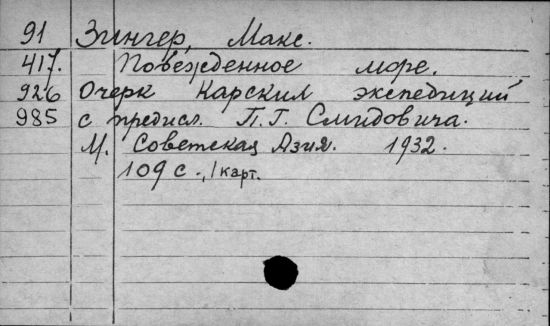 91 Зингер, Макс.
417. Побежденное море.
926 Очерк Карских экспедиций
985 с предисл. П. Г. Смидовича.
М. Советская Азия. 1932.
109 с., 1 карт.